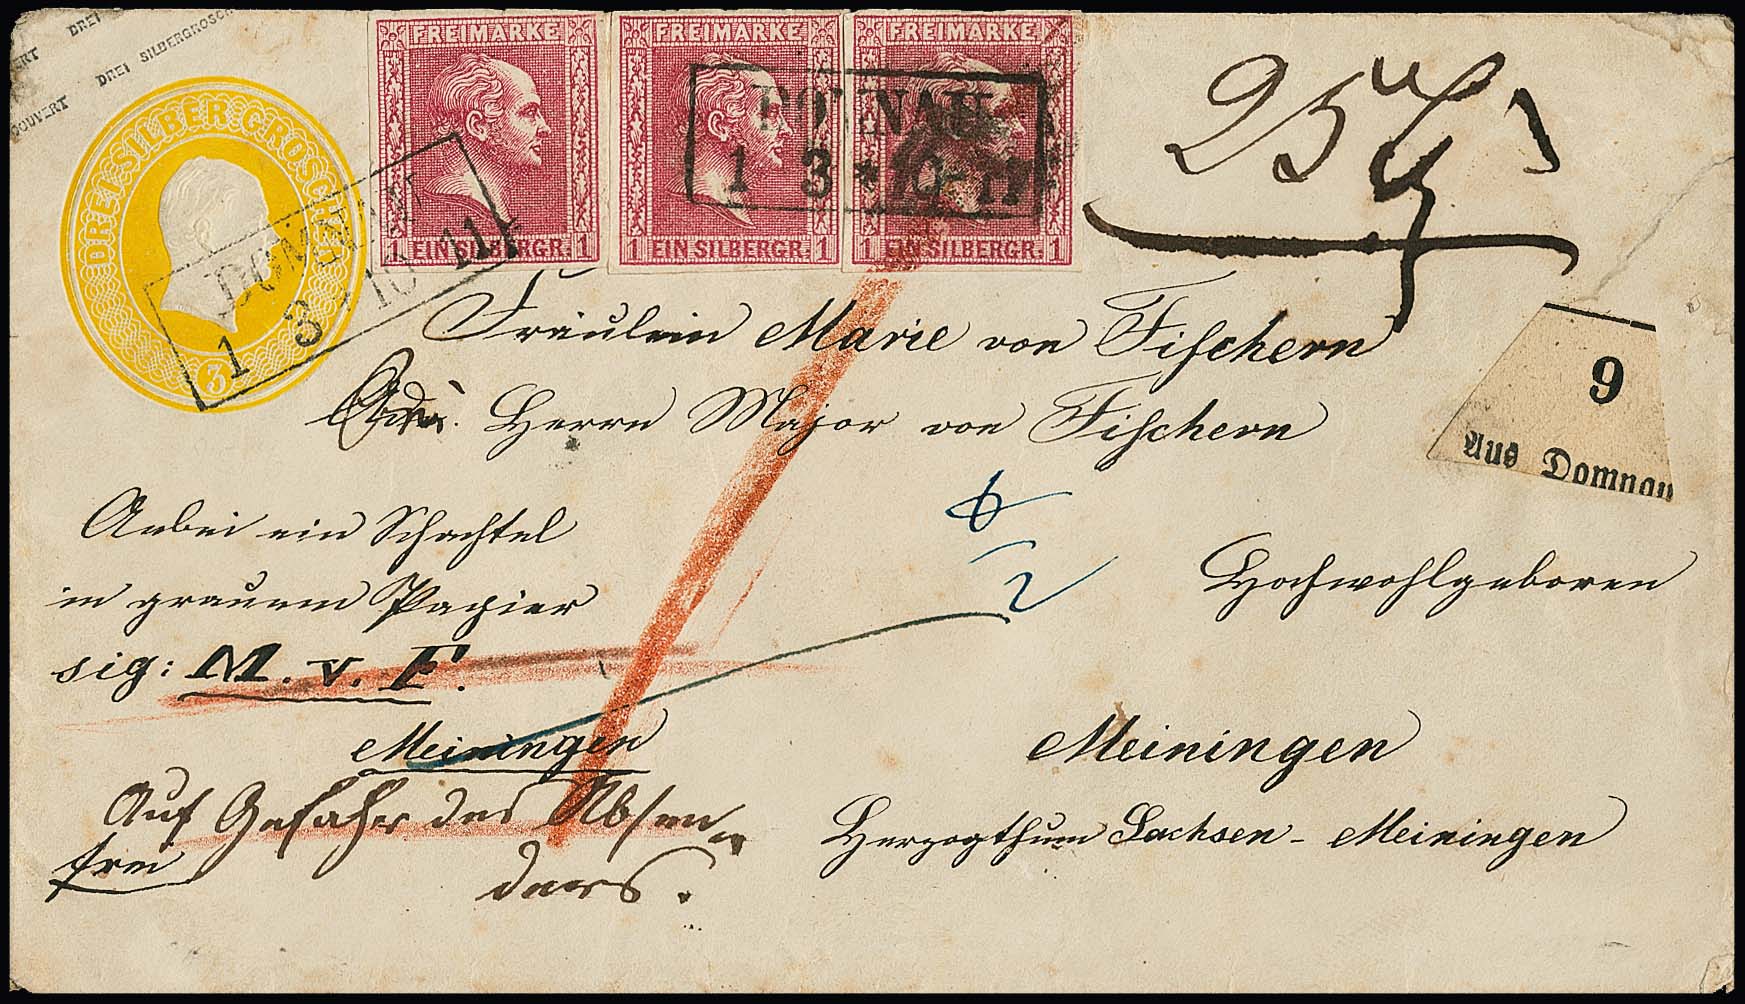 DREI SILBERGROSCH
COUVERT DREI
DREI SILBER GROSCHEN
3
FREIMARKE
1 EIN SILBERGR. 1
FREIMARKE
1 EIN SILBERGR. 1
FREIMARKE
1 EIN SILBERGR. 1
DOMNAU
1 3 * 10-11
DOMNAU
1 3 * 10-11
Fräulein Marie von Fischern
Herrn Major von Fischern
9
Aus Domnau
Anbei ein Schachtel
in grauem Papier
sig: M. v. F.
Meiningen
Auf Gefahr des Absen-
ders.
frei
Hochwohlgeboren
Meiningen
Herzogthum Sachsen - Meiningen